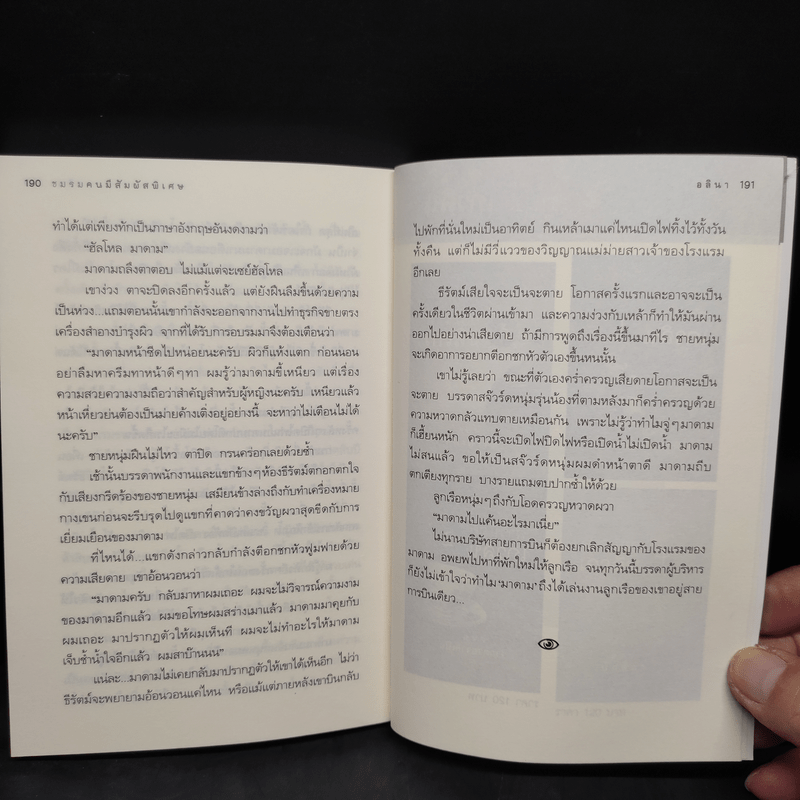 190 ชมรมคนมีสัมผัสพิเศษ
ทำได้แต่เพียงทักเป็นภาษาอังกฤษอันงดงามว่า
“ฮัลโหล มาดาม”
มาดามถลึงตาตอบ ไม่แม้แต่จะเซย์ฮัลโหล
เขาง่วง ตาจะปิดลงอีกครั้งแล้ว แต่ยังฝืนลืมขึ้นด้วยความ
เป็นห่วง...แถมตอนนั้นเขากำลังจะออกจากงานไปทำธุรกิจขายตรง
เครื่องสำอางบำรุงผิว จากที่ได้รับการอบรมมาจึงต้องเตือนว่า
“มาดามหน้าซีดไปหน่อยนะครับ ผิวก็แห้งแตก ก่อนนอน
อย่าลืมหาครีมทาหน้าดีๆทา ผมรู้ว่ามาดามขี้เหนียว แต่เรื่อง
ความสวยความงามถือว่าสำคัญสำหรับผู้หญิงนะครับ เหนียวแล้ว
หน้าเหี่ยวย่นต้องเป็นม่ายค้างเติ่งอยู่อย่างนี้ จะหาว่าไม่เตือนไม่ได้
นะครับ”
ชายหนุ่มฝืนไม่ไหว ตาปิด กรนคร่อกเลยด้วยซ้ำ
เช้านั้นบรรดาพนักงานและแขกข้างๆห้องธีรัตม์ตกอกตกใจ
กับเสียงกรีดร้องของชายหนุ่ม เสมียนข้างล่างถึงกับทำเครื่องหมาย
กางเขนก่อนจะรีบรุดไปดูแขกที่คาดว่าคงขวัญผวาสุดขีดกับการ
เยี่ยมเยือนของมาดาม
ที่ไหนได้...แขกดังกล่าวกลับกำลังตีอกชกหัวฟูมฟายด้วย
ความเสียดาย เขาอ้อนวอนว่า
“มาดามครับ กลับมาหาผมเถอะ ผมจะไม่วิจารณ์ความงาม
ของมาดามอีกแล้ว ผมขอโทษผมสร่างเมาแล้ว มาดามมาคุยกับ
ผมเถอะ มาปรากฏตัวให้ผมเห็นที ผมจะไม่ทำอะไรให้มาดาม
เจ็บช้ำน้ำใจอีกแล้ว ผมสาบ้านนน”
แน่ละ...มาดามไม่เคยกลับมาปรากฏตัวให้เขาได้เห็นอีก ไม่ว่า
ธีรัตม์จะพยายามอ้อนวอนแค่ไหน หรือแม้แต่ภายหลังเขาบินกลับ
อลินา 191
ไปพักที่นั่นใหม่เป็นอาทิตย์ กินเหล้าเมาแค่ไหนเปิดไฟทิ้งไว้ทั้งวัน
ทั้งคืน แต่ก็ไม่มีวี่แววของวิญญาณแม่ม่ายสาวเจ้าของโรงแรม
อีกเลย
ธีรัตม์เสียใจจะเป็นจะตาย โอกาสครั้งแรกและอาจจะเป็น
ครั้งเดียวในชีวิตผ่านเข้ามา และความง่วงกับเหล้าก็ทำให้มันผ่าน
ออกไปอย่างน่าเสียดาย ถ้ามีการพูดถึงเรื่องนี้ขึ้นมาทีไร ชายหนุ่ม
จะเกิดอาการอยากตีอกชกหัวตัวเองขึ้นหนนั้น
เขาไม่รู้เลยว่า ขณะที่ตัวเองคร่ำครวญเสียดายโอกาสจะเป็น
จะตาย บรรดาสจ๊วร์ดหนุ่มรุ่นน้องที่ตามหลังมาก็คร่ำครวญด้วย
ความหวาดกลัวแทบตายเหมือนกัน เพราะไม่รู้ว่าทำไมจู่ๆมาดาม
ก็เฮี้ยนหนัก คราวนี้จะเปิดไฟปิดไฟหรือเปิดน้ำไม่เปิดน้ำ มาดาม
ไม่สนแล้ว ขอให้เป็นสจ๊วร์ดหนุ่มผมดำหน้าตาดี มาดามถีบ
ตกเตียงทุกราย บางรายแถมตบปากซ้ำให้ด้วย
ลูกเรือหนุ่มๆถึงกับโอดครวญหวาดผวา
“มาดามไปแค้นอะไรมาเนี่ย”
ไม่นานบริษัทสายการบินก็ต้องยกเลิกสัญญากับโรงแรมของ
มาดาม อพยพไปหาที่พักใหม่ให้ลูกเรือ จนทุกวันนี้บรรดาผู้บริหาร
ก็ยังไม่เข้าใจว่าทำไม ‘มาดาม’ ถึงได้เล่นงานลูกเรือของเขาอยู่สาย
การบินเดียว...